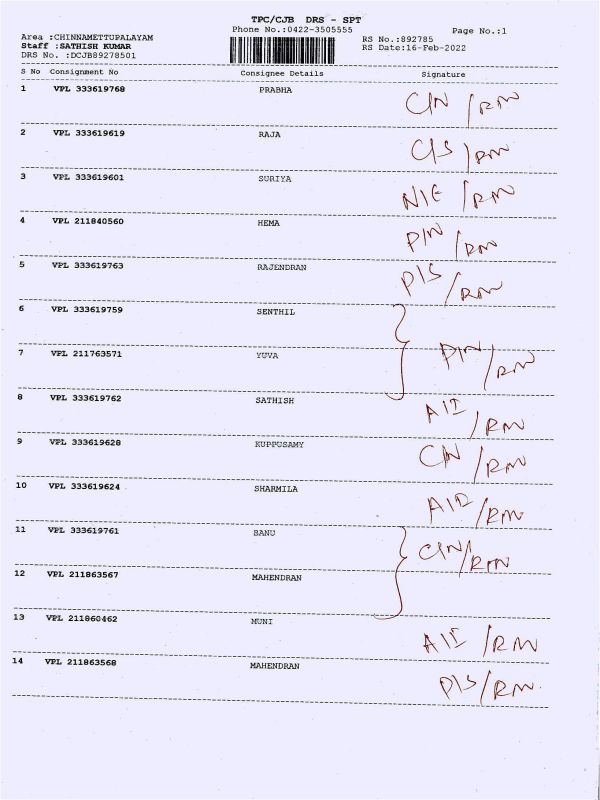 TPC/CJB DRS - SPT
Phone No.:0422-3505555 Page No.:1
Area :CHINNAMETTUPALAYAM RS No.:892785
Staff :SATHISH KUMAR RS Date:16-Feb-2022
DRS No. :DCJB89278501
S No Consignment No Consignee Details Signature
1 VPL 333619768 PRABHA C/N /RM
2 VPL 333619619 RAJA C/S /RM
3 VPL 333619601 SURIYA N/E /RM
4 VPL 211840560 HEMA P/N /RM
5 VPL 333619763 RAJENDRAN P/S /RM
6 VPL 333619759 SENTHIL
7 VPL 211763571 YUVA P/N /RM
8 VPL 333619762 SATHISH A/I /RM
9 VPL 333619628 KUPPUSAMY C/N /RM
10 VPL 333619624 SHARMILA /RM
11 VPL 333619761 BANU C/N/RM
12 VPL 211863567 MAHENDRAN
13 VPL 211860462 MUNI A/I /RM
14 VPL 211863568 MAHENDRAN P/S/RM